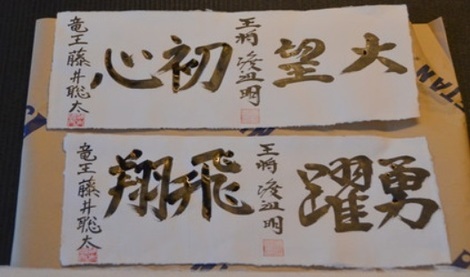 大望
王将 渡辺明
初心
竜王 藤井聡太
勇躍
王将 渡辺明
飛翔
竜王 藤井聡太